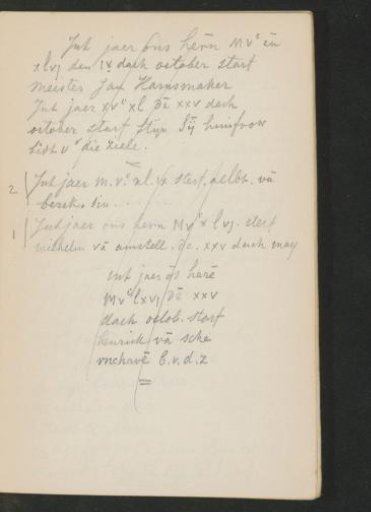 Int jaer ōns hērn Mvᶜ en̄
xlvj den ix dach october starf
meister Jan Harnsmaker
Int jaer xvᶜ xl den̄ xxv dach
october starf Sijn huisfrow
bidt vʳ die ziele.
2 Int jaer M.vᶜ. xl. starf. aelbt. vā
1 Int jaer ons hern Mvᶜ x lvj. sterf
wilhelm vā amstell. xxv dach may
int jaer ōs herē
Mvᶜ lxvj dē xxv
dach octob. starf
henrick vā sche
vnchavē b.v.d.z